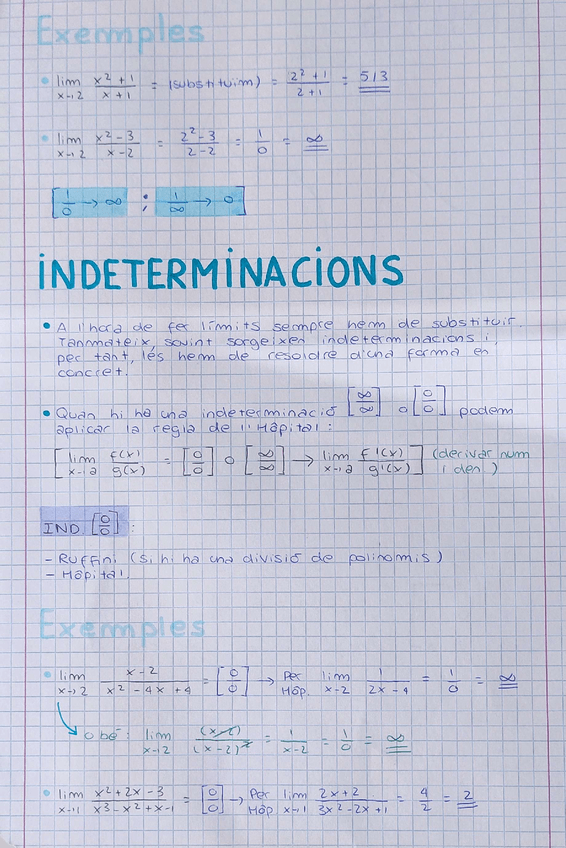 Exemples
• lim x→2 (x² + 1)/(x + 1) = (substituïm) = (2² + 1)/(2 + 1) = 5/3
• lim x→2 (x² − 3)/(x − 2) = (2² − 3)/(2 − 2) = 1/0 = ∞
[1/0 → ∞ ; 1/∞ → 0]
INDETERMINACIONS
• A l'hora de fer límits sempre hem de substituir.
Tanmateix, sovint sorgeixen indeterminacions i,
per tant, les hem de resoldre d'una forma en
concret.
• Quan hi ha una indeterminació [∞/∞] o [0/0] podem
aplicar la regla de l'Hôpital:
[lim x→a f(x)/g(x) = [0/0] o [∞/∞] → lim x→a f'(x)/g'(x)] (derivar num
i den.)
IND [0/0]:
- Ruffini (si hi ha una divisió de polinomis)
- Hôpital.
Exemples
• lim x→2 (x − 2)/(x² − 4x + 4) = [0/0] → Per Hôp. lim x→2 1/(2x − 4) = 1/0 = ∞
O bé: lim x→2 (x − 2)/(x − 2)² = 1/(x − 2) = 1/0 = ∞
• lim x→1 (x² + 2x − 3)/(x³ − x² + x − 1) = [0/0] → Per Hôp. lim x→1 (2x + 2)/(3x² − 2x + 1) = 4/2 = 2